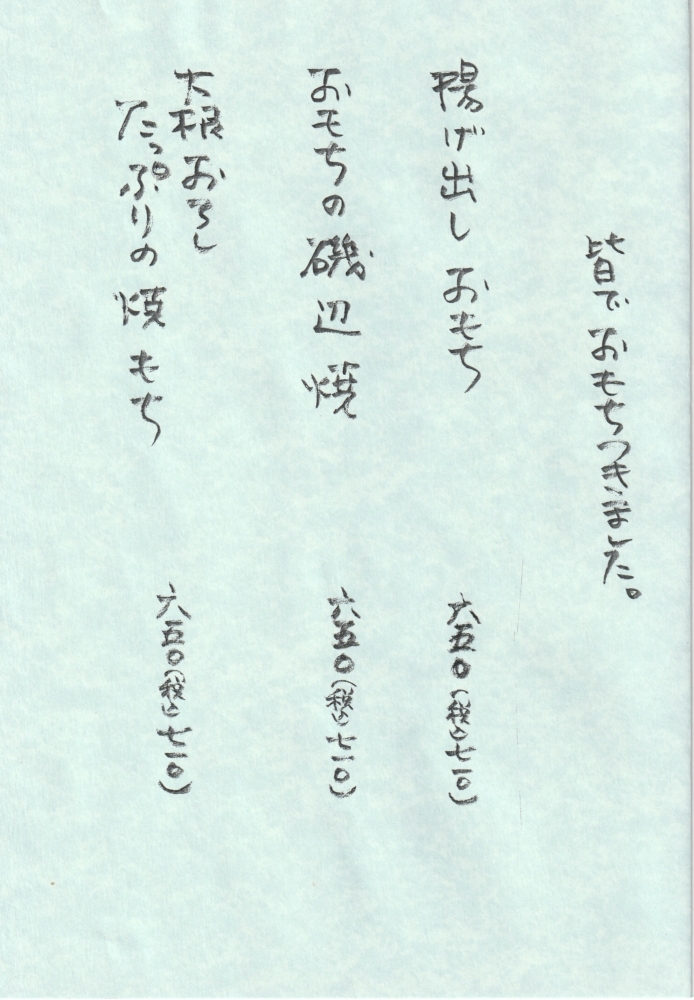 皆でおもちつきました。
揚げ出しおもち
六五〇(税込七一〇)
おもちの磯辺焼
六五〇(税込七一〇)
大根おろし
たっぷりの焼もち
六五〇(税込七一〇)